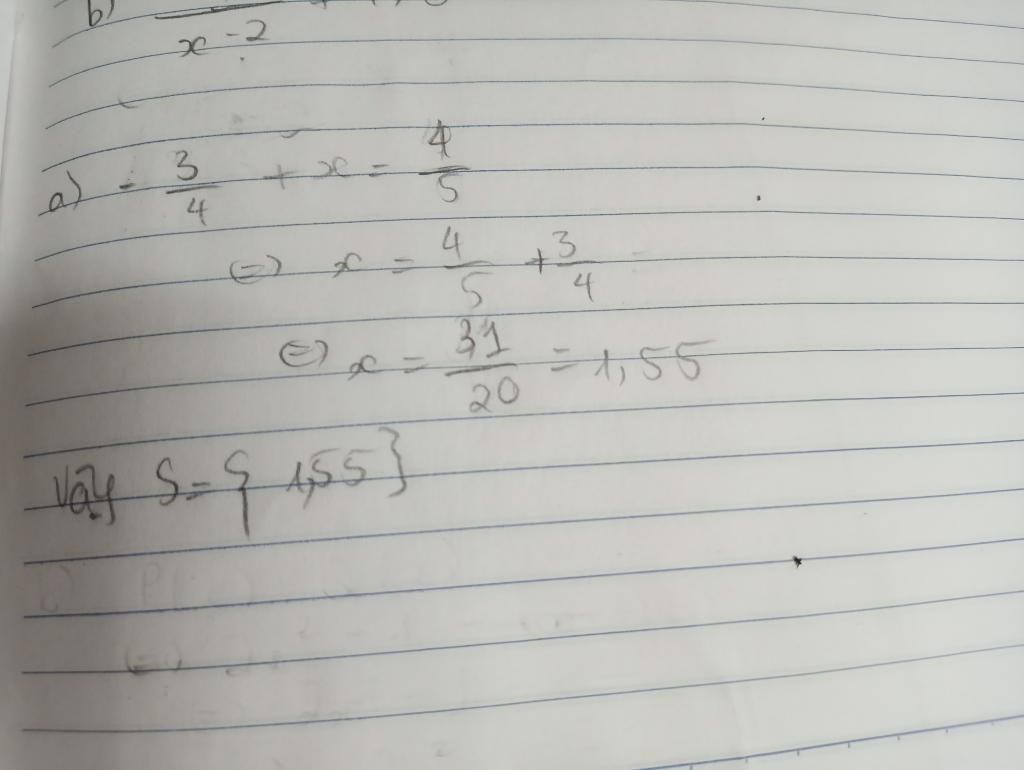 b)
x - 2
a) - 3/4 + x = 4/5
(=) x = 4/5 + 3/4
(=) x = 31/20 = 1,55
Vậy S = { 1,55 }